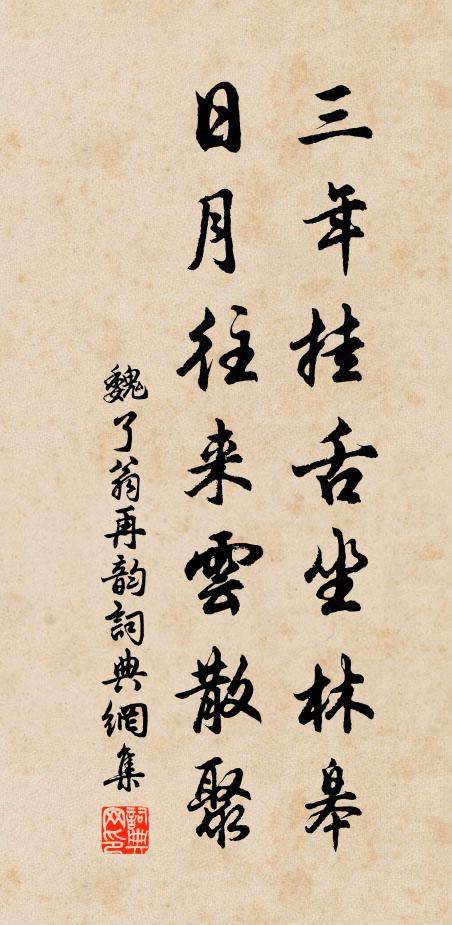 三年挂舌坐林皋
日月往来雲散聚
魏了翁再韵詞典網集
詞典网印